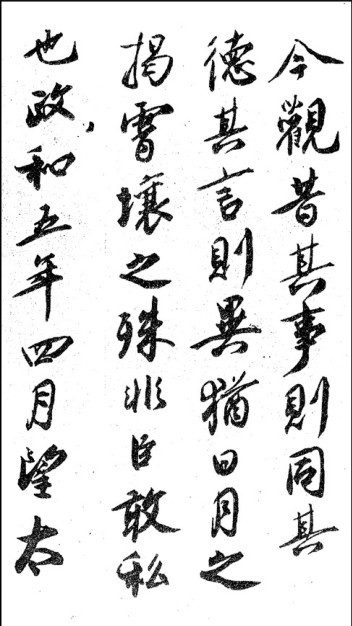 今觀昔其事則同其
德其言則異猶日月之
揭霄壤之殊非臣敢私
也政和五年四月望太